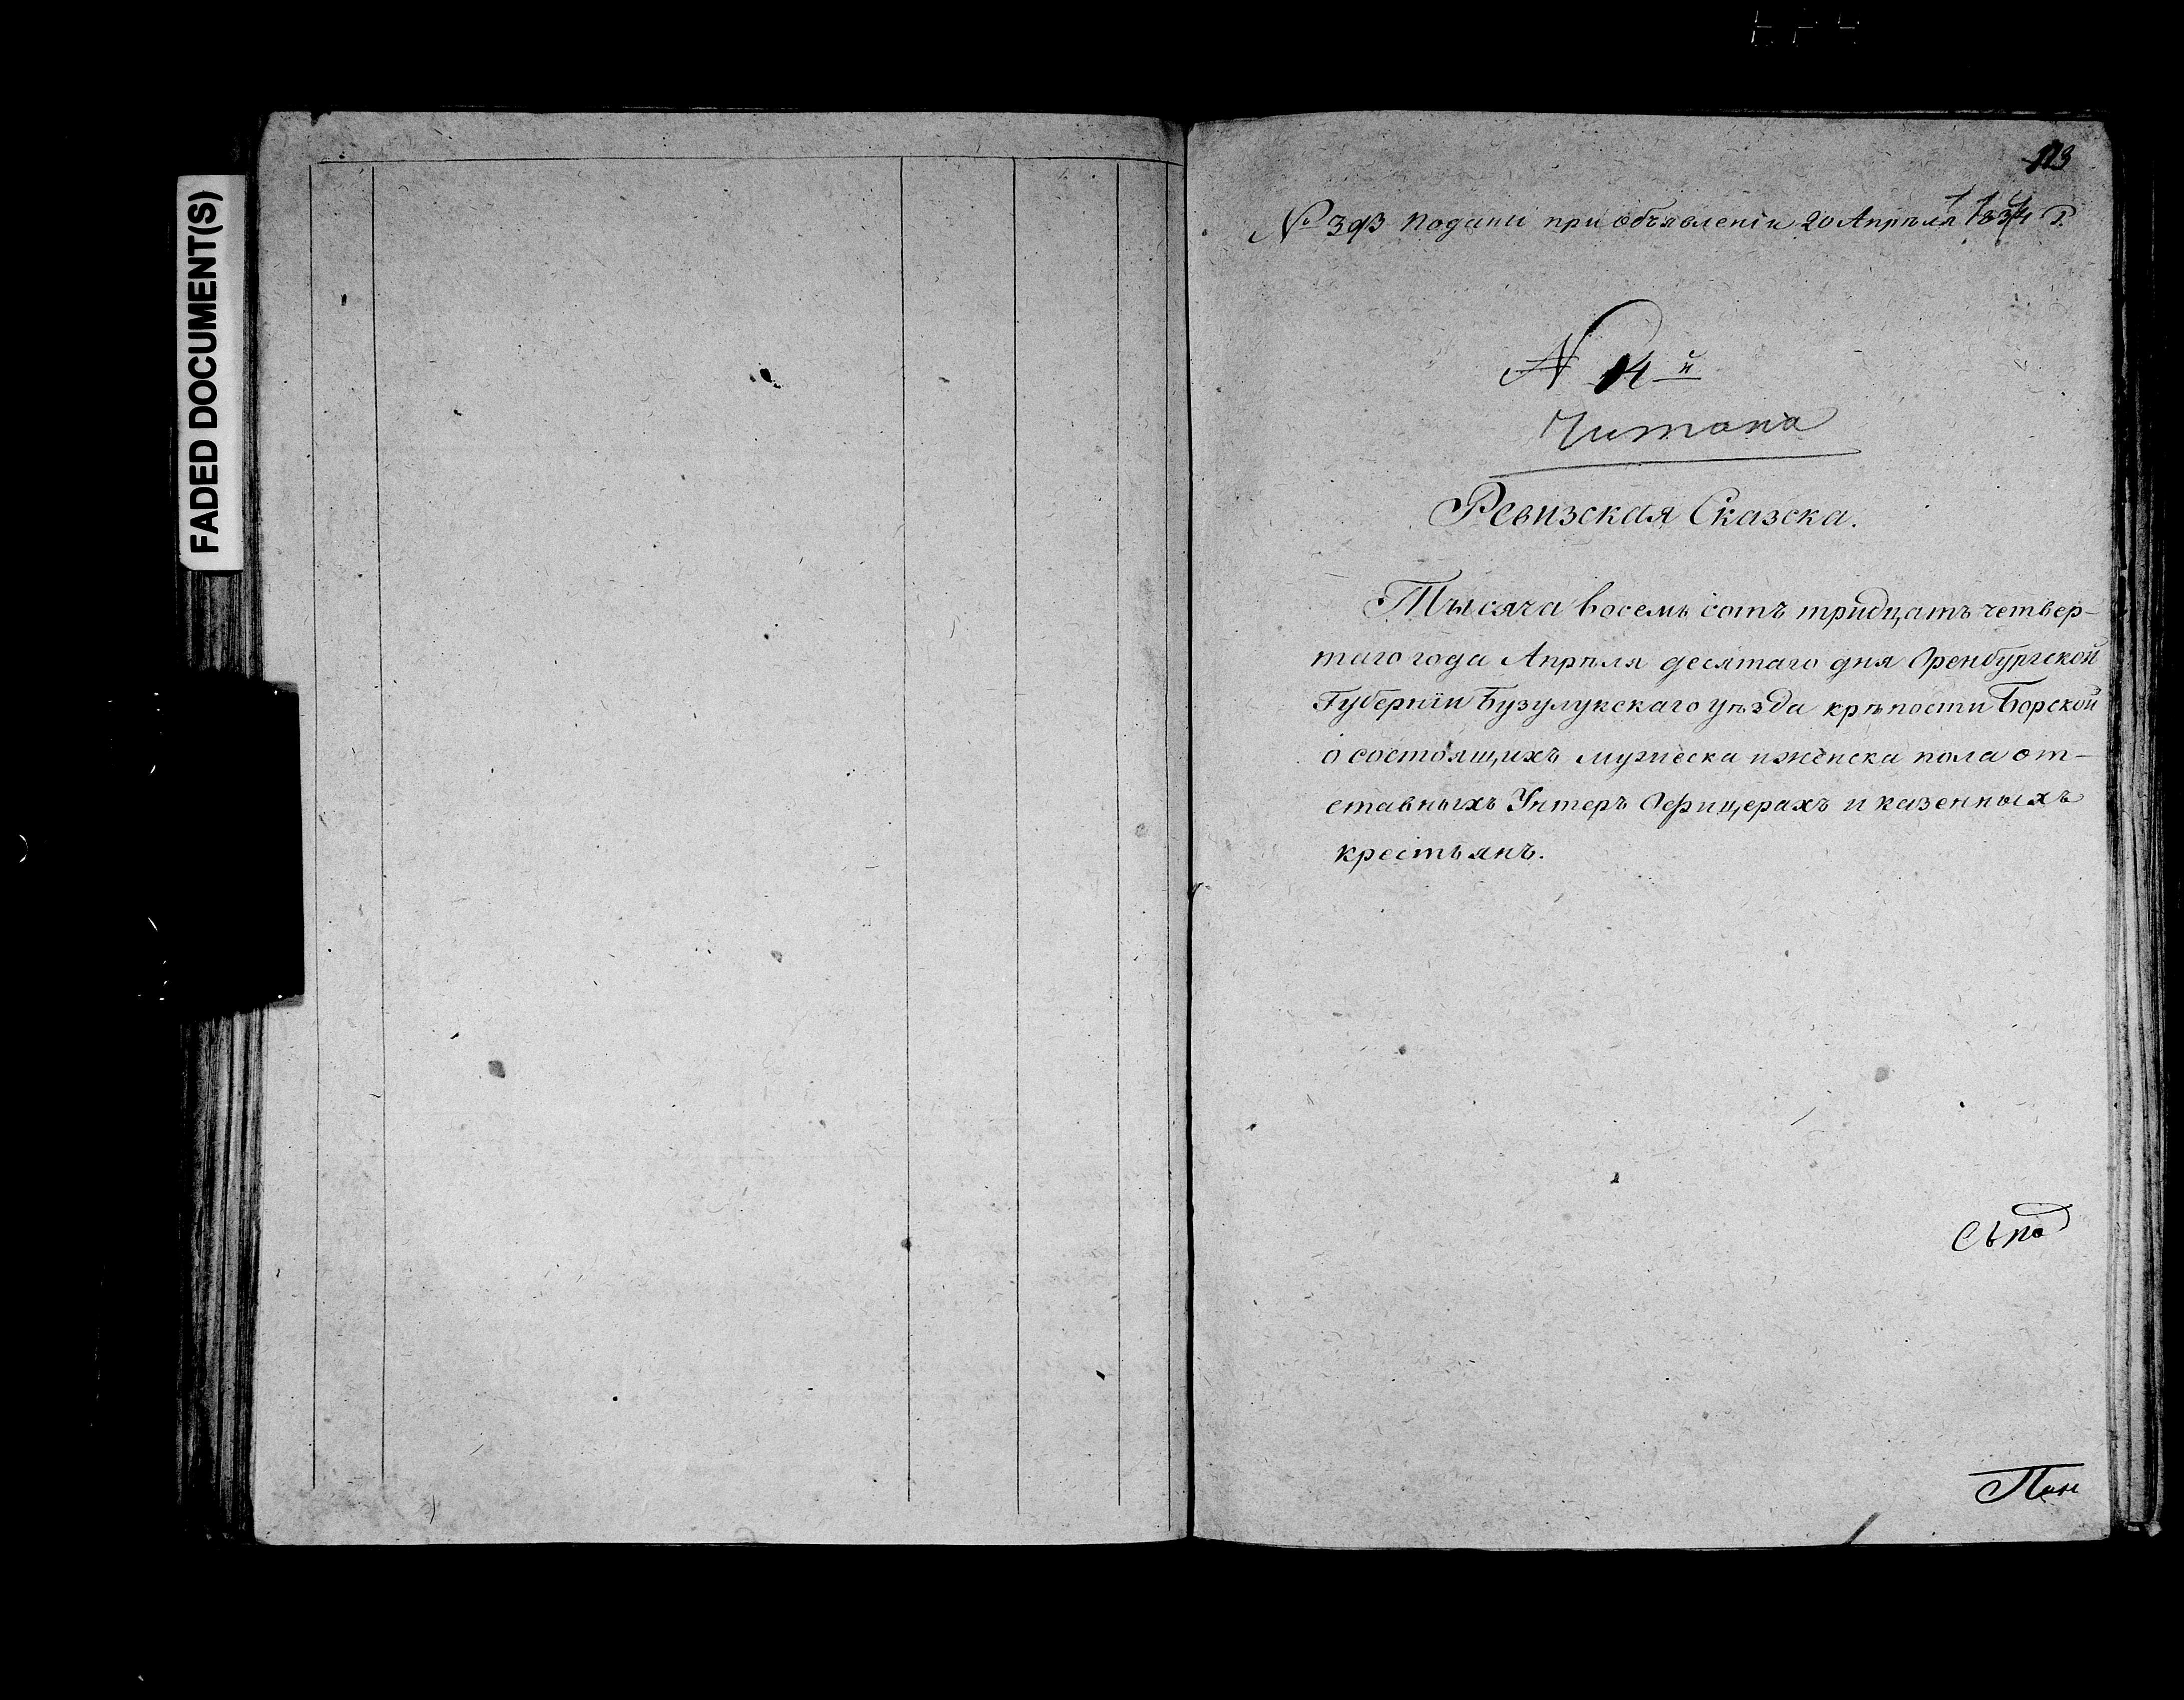 FADED DOCUMENT(S)
№ 393 подани при объявленіи 20 Апрѣля 1834 Г.
№ 14й
Читана
Ревизская Сказска.
Тысяча восемь сотъ тридцать четвер-
таго года Апрѣля десятаго дня Оренбургской
Губерніи Бузулукскаго уѣзда крѣпости Борской
о состоящихъ мужеска и женска пола от-
ставныхъ Унтеръ Офицерахъ и казенныхъ
крестьянъ.